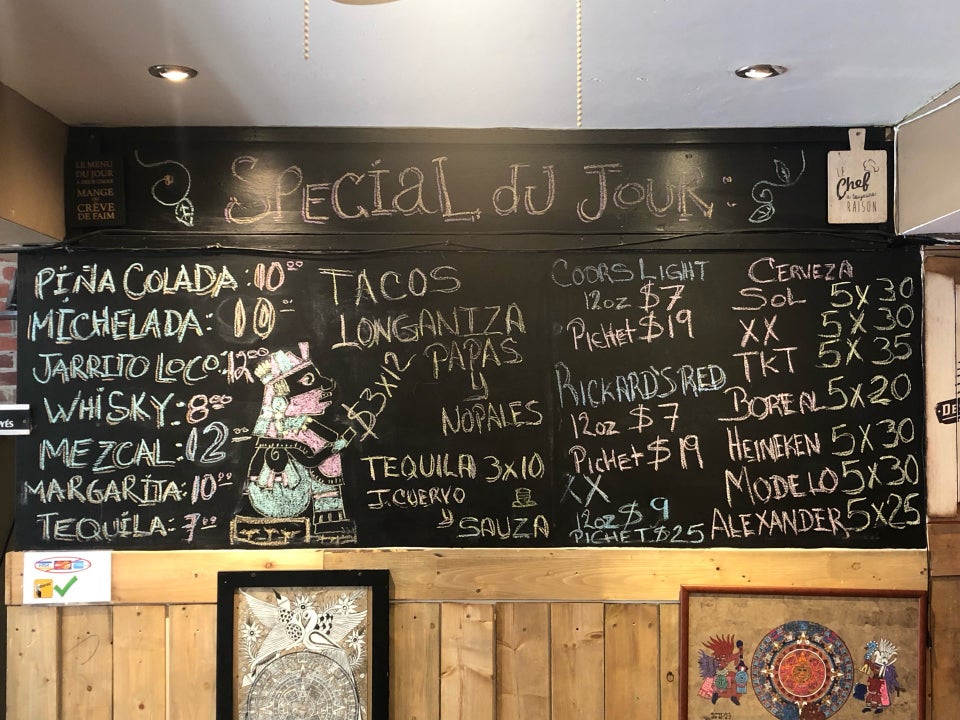 SPECiAL dU JOUR:
LE MENU
DU JOUR
MANGE
OU
CRÈVE
DE FAIM
LE
Chef
a toujours
RAISON
PIÑA COLADA: 10.00
MICHELADA: 10
JARRITO LOCO: 12.00
WHISKY: 8.00
MEZCAL: 12
MARGARITA: 10.00
TEQUILA: 7.00
TACOS
LONGANTZA
PAPAS
y
NOPALES
$3X12
TEQUILA 3X10
J. CUERVO
y
SAUZA
COORS LIGHT
12oz $7
PICHET $19
RICKARD'S RED
12oz $7
PICHET $19
XX
12oz $9
PICHET $25
CERVEZA
SOL 5X30
XX 5X30
TKT 5X35
BOREAL 5X20
HEINEKEN 5X30
MODELO 5X30
ALEXANDER 5X25